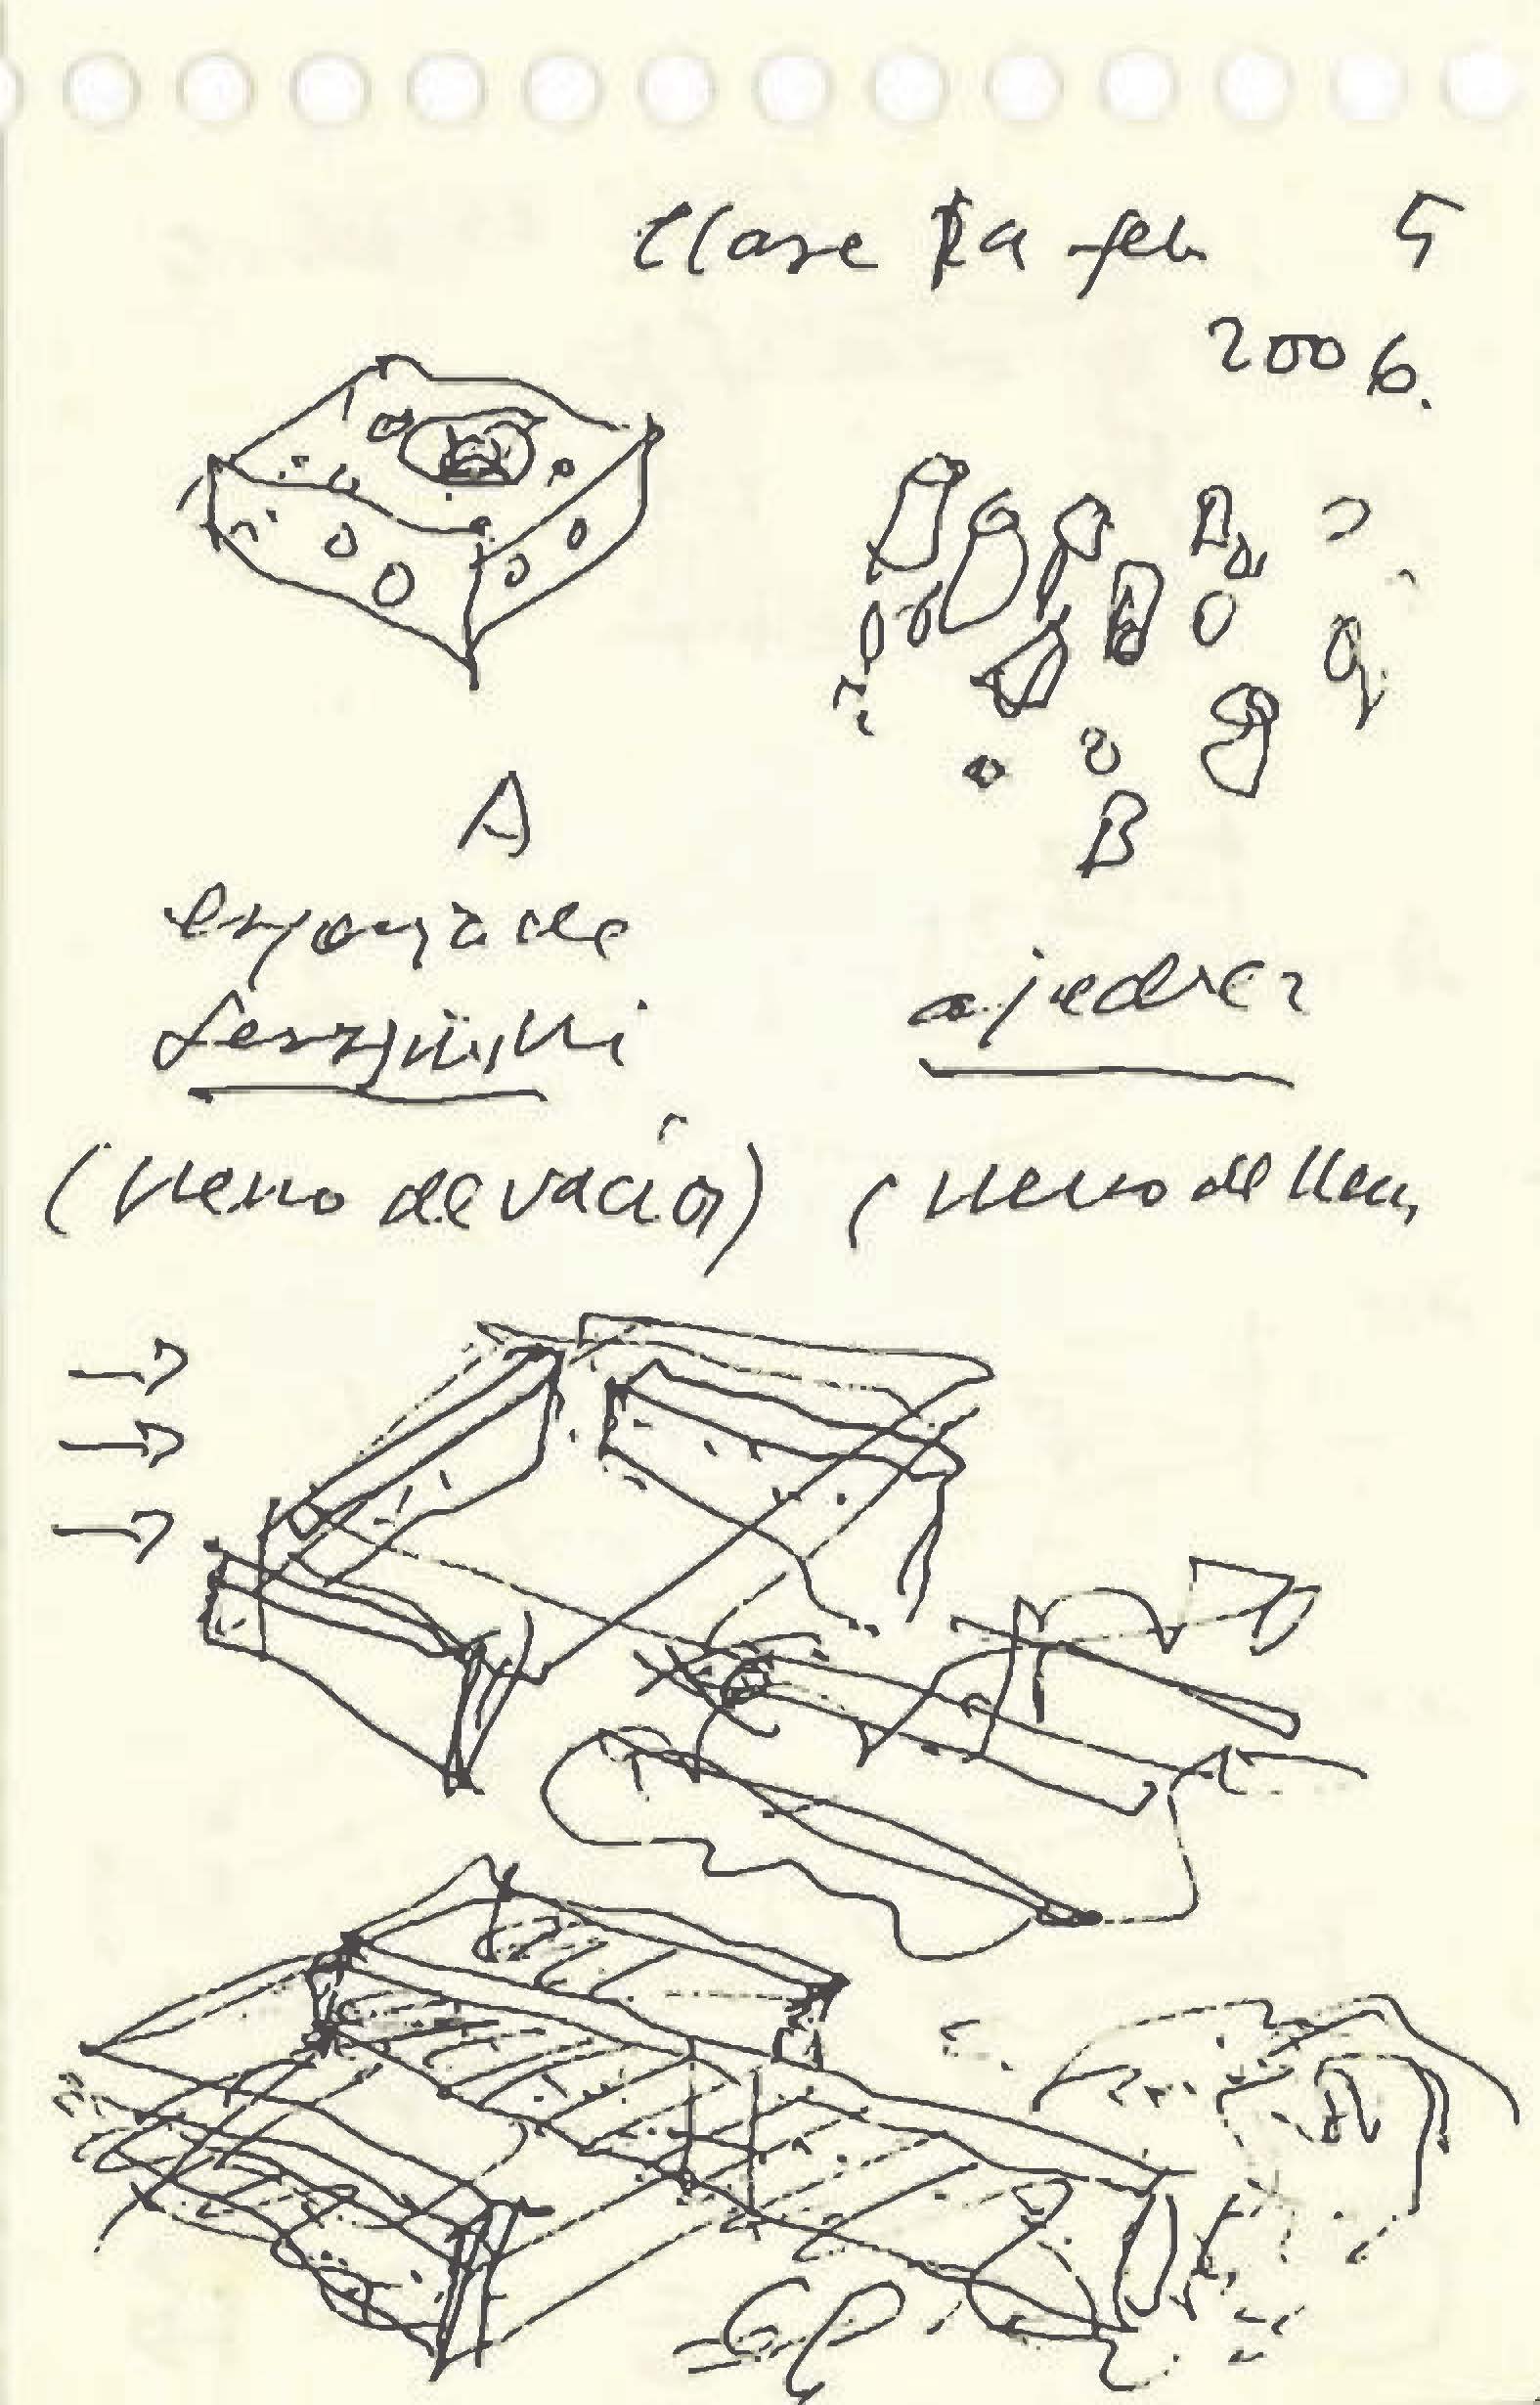 Clase Ra feb 5
2006.
A
B
esponja de
ajedrez
(lleno de vacío)
(lleno de lleno